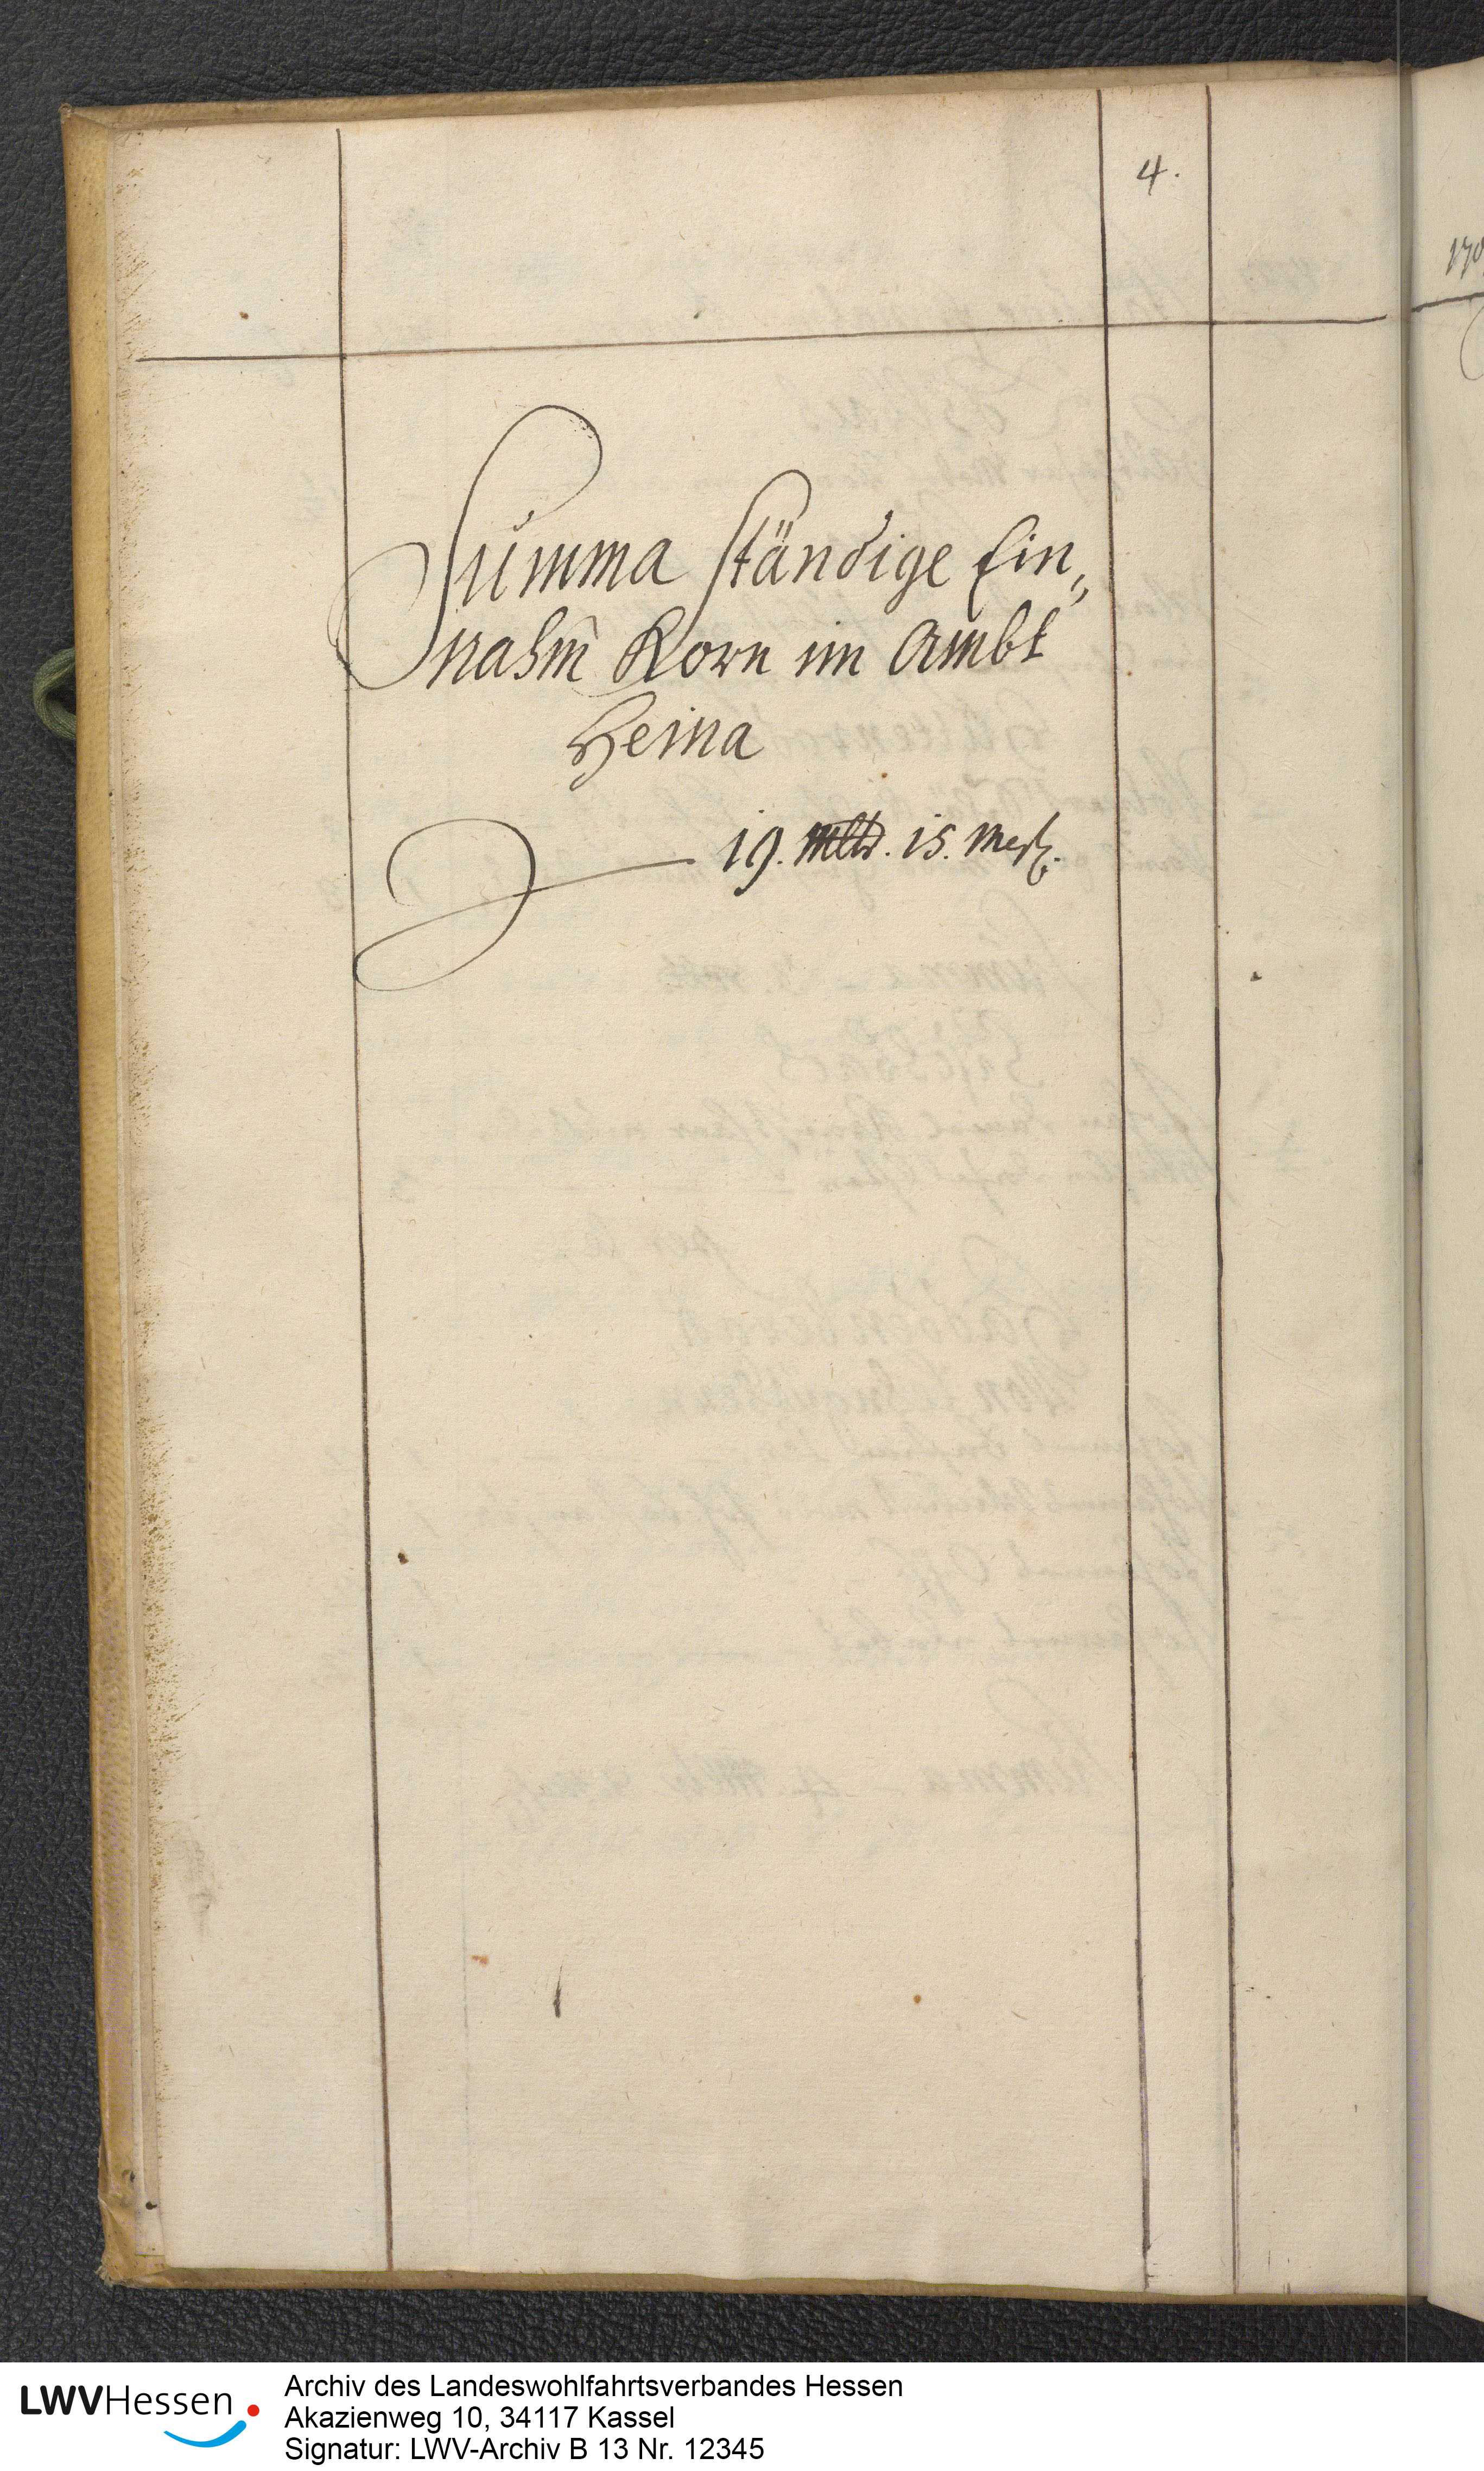 4.
170
Summa ständige Ein„
nahm̄ Korn im Ambt
Heina
19. Mltr. 15. Mesz.
LWVHessen
Archiv des Landeswohlfahrtsverbandes Hessen
Akazienweg 10, 34117 Kassel
Signatur: LWV-Archiv B 13 Nr. 12345